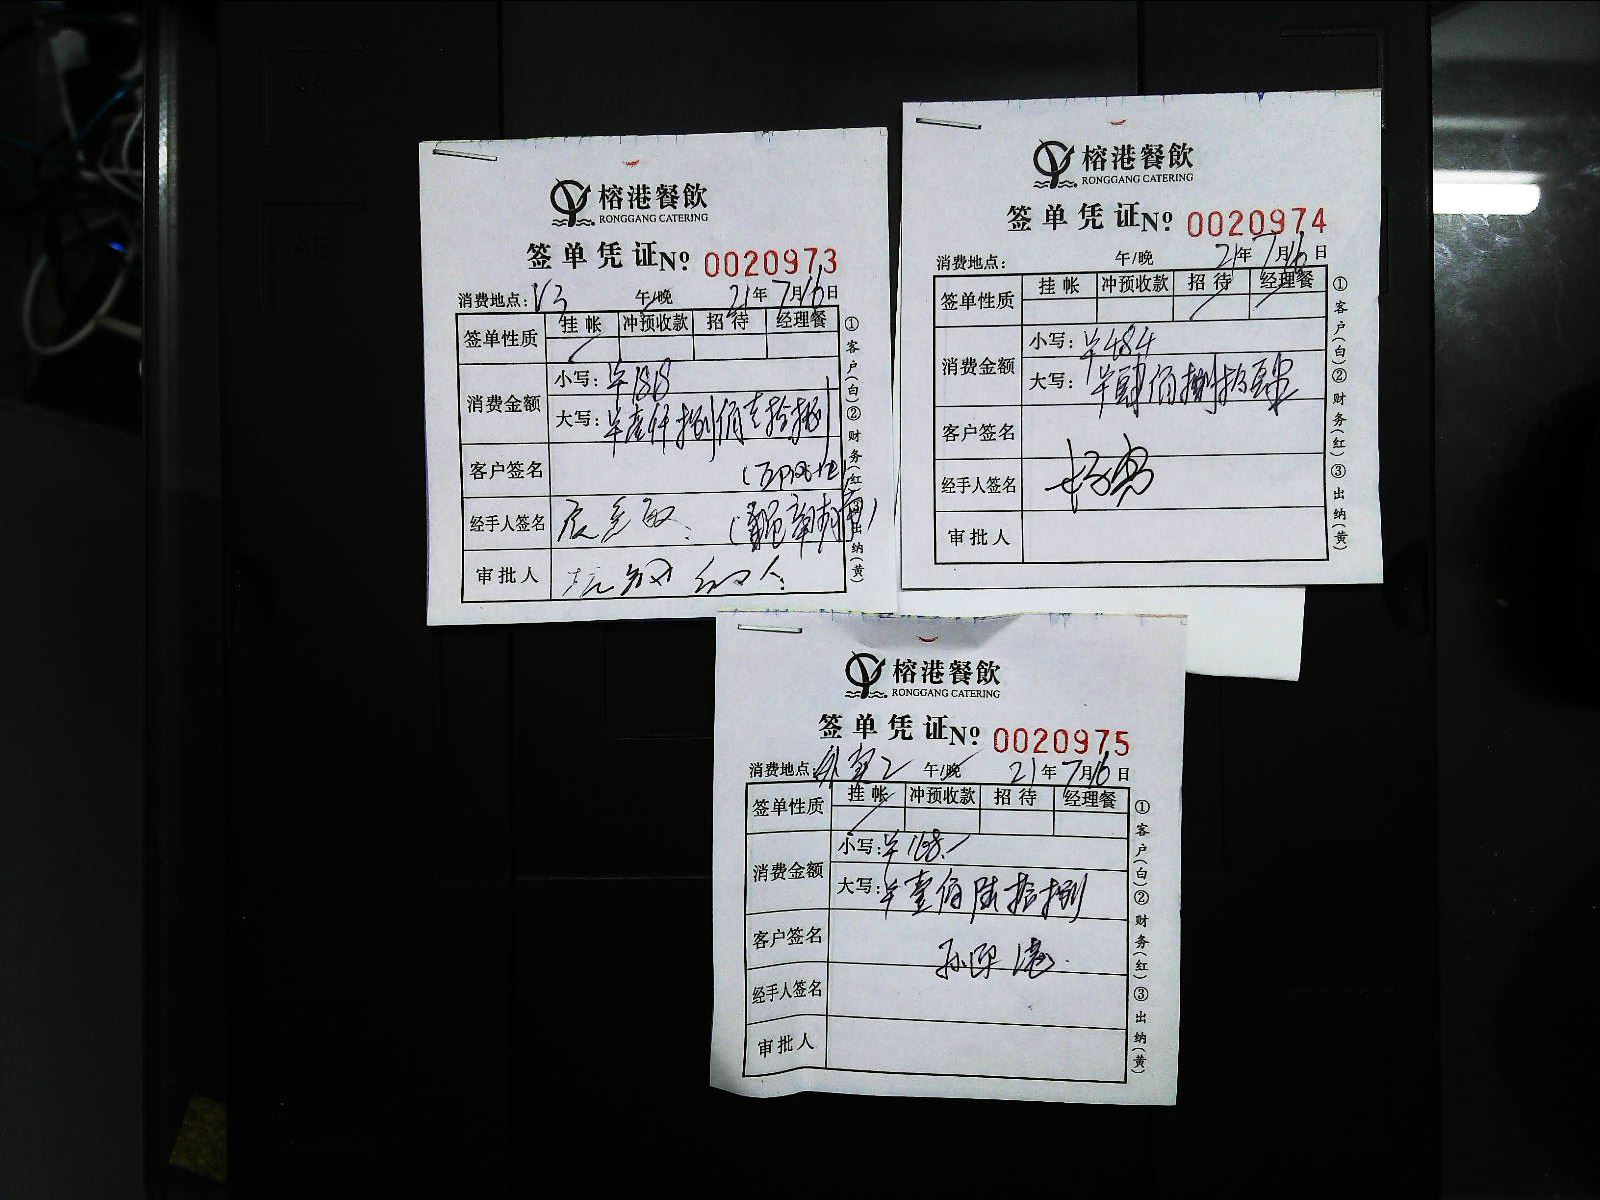 榕港餐飲
RONGGANG CATERING
签单凭证 Nº 0020973
消费地点: V3 午/晚 21年7月16日
签单性质 挂帐 冲预收款 招待 经理餐
消费金额
小写: ¥1818
大写: ¥壹仟捌佰壹拾捌
客户签名
经手人签名
审批人
①客户(白)②财务(红)③出纳(黄)
榕港餐飲
RONGGANG CATERING
签单凭证 Nº 0020974
消费地点: 午/晚 21年7月16日
签单性质 挂帐 冲预收款 招待 经理餐
消费金额
小写: ¥484
大写: ¥肆佰捌拾肆
客户签名
经手人签名
审批人
①客户(白)②财务(红)③出纳(黄)
榕港餐飲
RONGGANG CATERING
签单凭证 Nº 0020975
消费地点: 2 午/晚 21年7月16日
签单性质 挂帐 冲预收款 招待 经理餐
消费金额
小写: ¥168.-
大写: ¥壹佰陆拾捌
客户签名 孙
经手人签名
审批人
①客户(白)②财务(红)③出纳(黄)